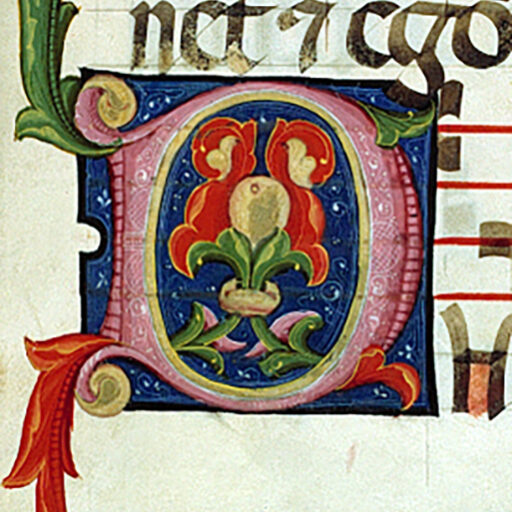 net ⁊ ego
D